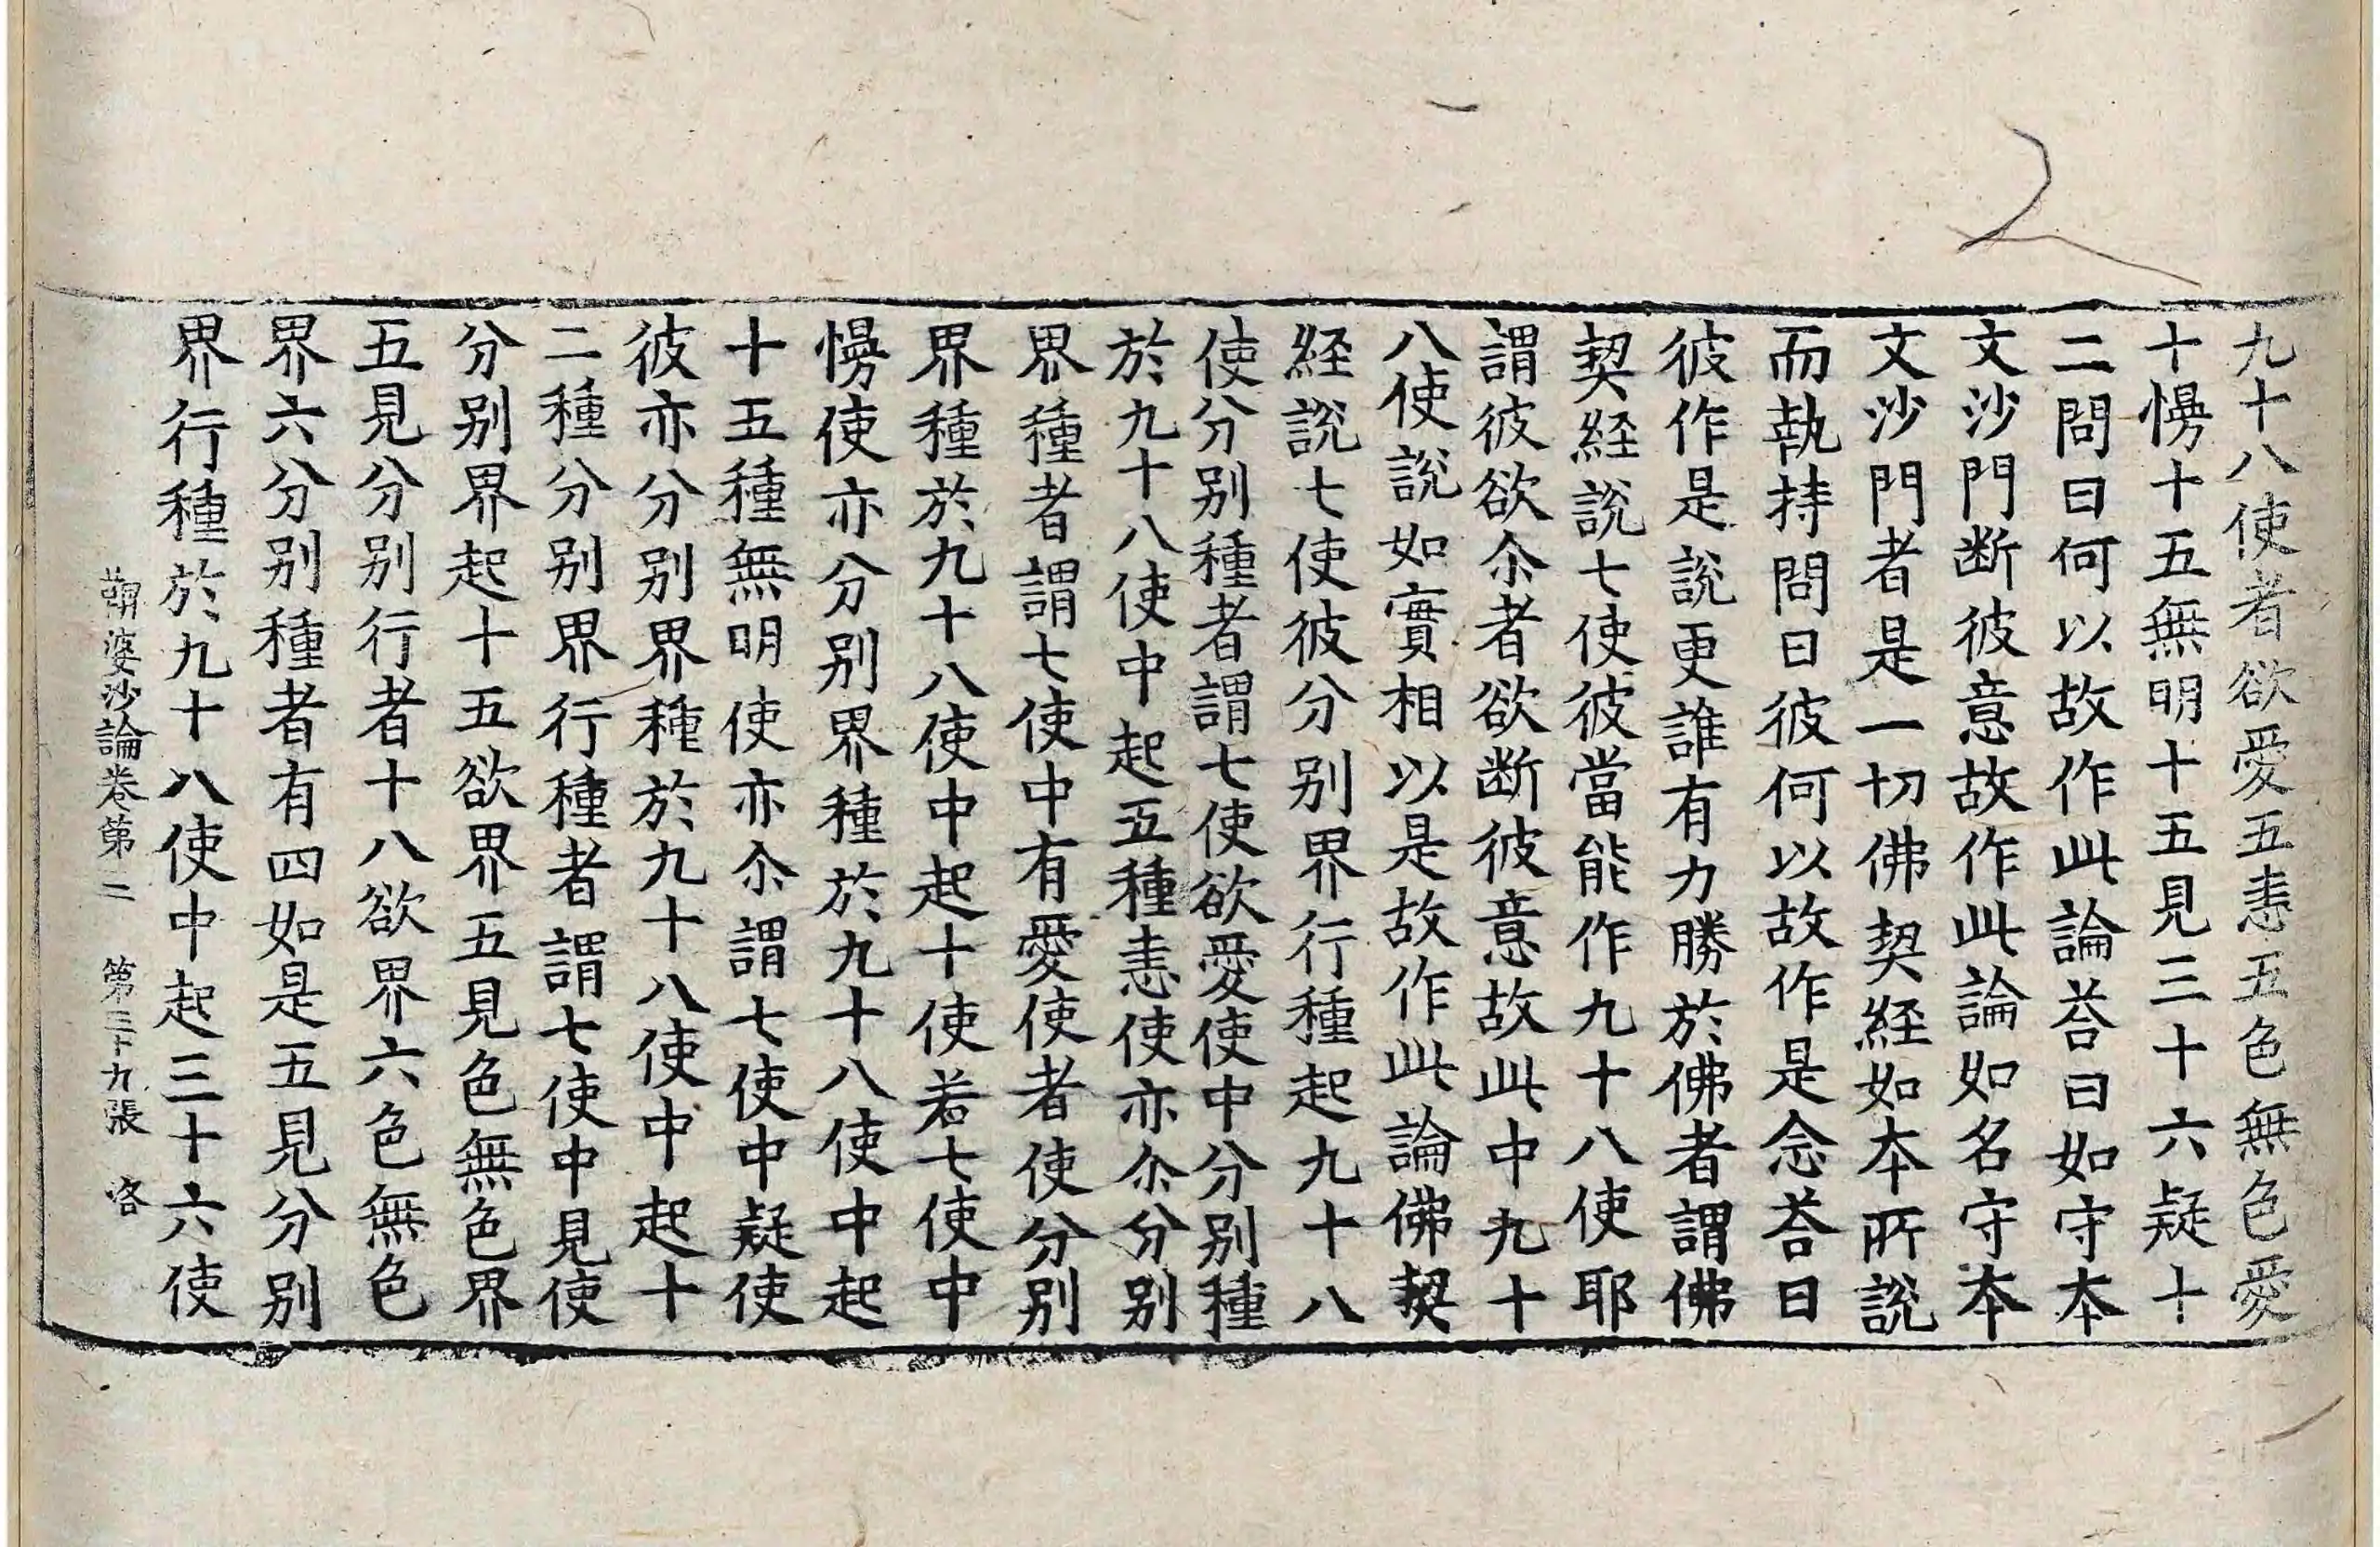 九十八使者欲愛五恚五色無色愛
十慢十五無明十五見三十六疑十
二問曰何以故作此論荅曰如守本
文沙門断彼意故作此論如名守本
文沙門者是一切佛契経如本所說
而執持問曰彼何以故作是念荅曰
彼作是說更誰有力勝於佛者謂佛
契経說七使彼當能作九十八使耶
謂彼欲尒者欲断彼意故此中九十
八使說如實相以是故作此論佛契
経說七使彼分别界行種起九十八
使分别種者謂七使欲愛使中分别種
於九十八使中起五種恚使亦尒分别
界種者謂七使中有愛使者使分别
界種於九十八使中起十使若七使中
慢使亦分别界種於九十八使中起
十五種無明使亦尒謂七使中疑使
彼亦分别界種於九十八使中起十
二種分别界行種者謂七使中見使
分别界起十五欲界五見色無色界
五見分别行者十八欲界六色無色
界六分别種者有四如是五見分别
界行種於九十八使中起三十六使
鞞婆沙論卷第二　第三十九張